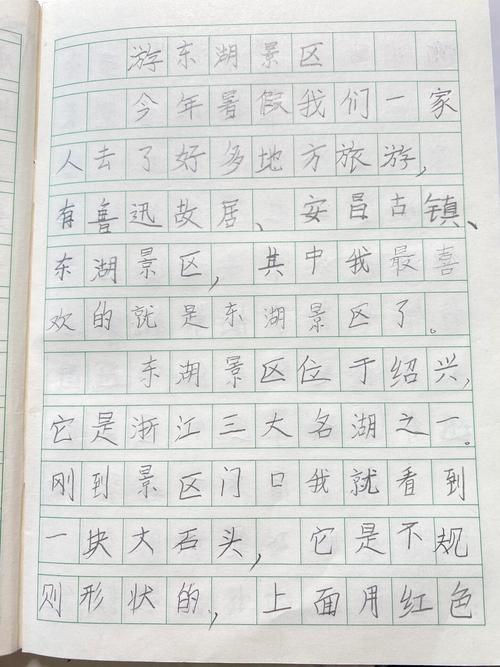 游东湖景区
今年暑假我们一家
人去了好多地方旅游，
有鲁迅故居、安昌古镇、
东湖景区，其中我最喜
欢的就是东湖景区了。
东湖景区位于绍兴，
它是浙江三大名湖之一。
刚到景区门口我就看到
一块大石头，它是不规
则形状的，上面用红色